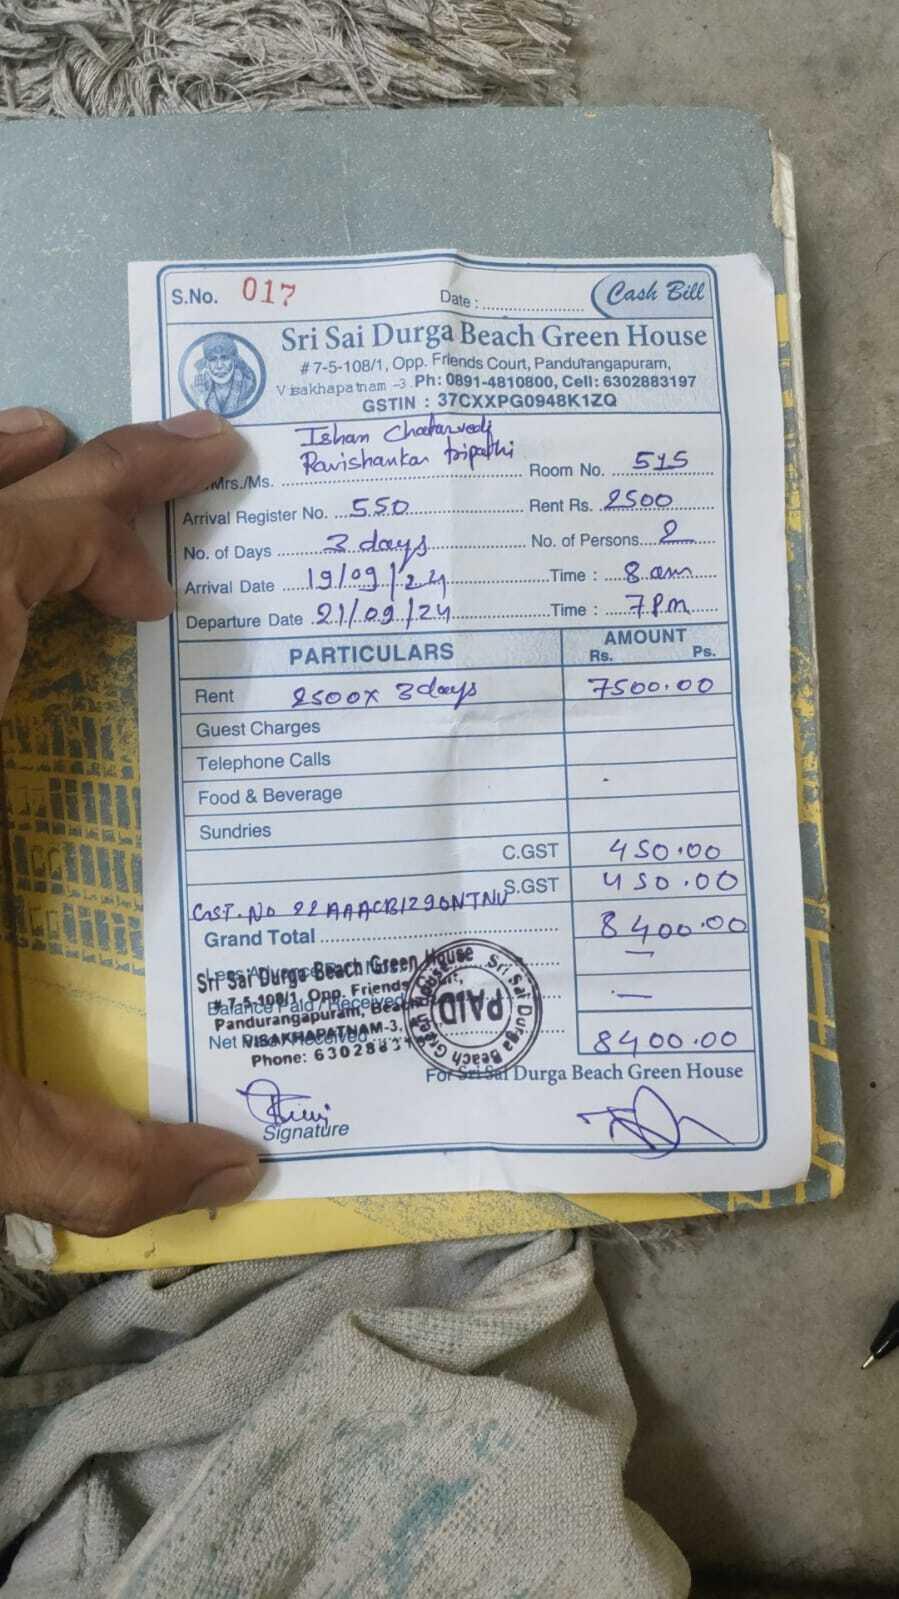 S.No. 017 Date : Cash Bill
Sri Sai Durga Beach Green House
# 7-5-108/1, Opp. Friends Court, Pandurangapuram,
Visakhapatnam -3. Ph: 0891-4810800, Cell: 6302883197
GSTIN : 37CXXPG0948K1ZQ
Ishan Chatarvedi
Ravishankar tripathi
Mrs./Ms. Room No. 515
Arrival Register No. 550 Rent Rs. 2500
No. of Days 3 days No. of Persons 2
Arrival Date 19/09/24 Time : 8 am
Departure Date 21/09/24 Time : 7 Pm
PARTICULARS AMOUNT
Rs. Ps.
Rent 2500x 3 days 7500.00
Guest Charges
Telephone Calls
Food & Beverage
Sundries
C.GST 450.00
S.GST 450.00
GST. NO 22AAACB1290NTNV
Grand Total 8400.00
Sri Sai Durga Beach Green House
# 7-5-108/1, Opp. Friends
Balance Paid / Received
Pandurangapuram, Beach
VISAKHAPATNAM-3.
Net 8400.00
Phone: 630288
Sri Sai Durga Beach Green House
PAID
For Sri Sai Durga Beach Green House
Signature